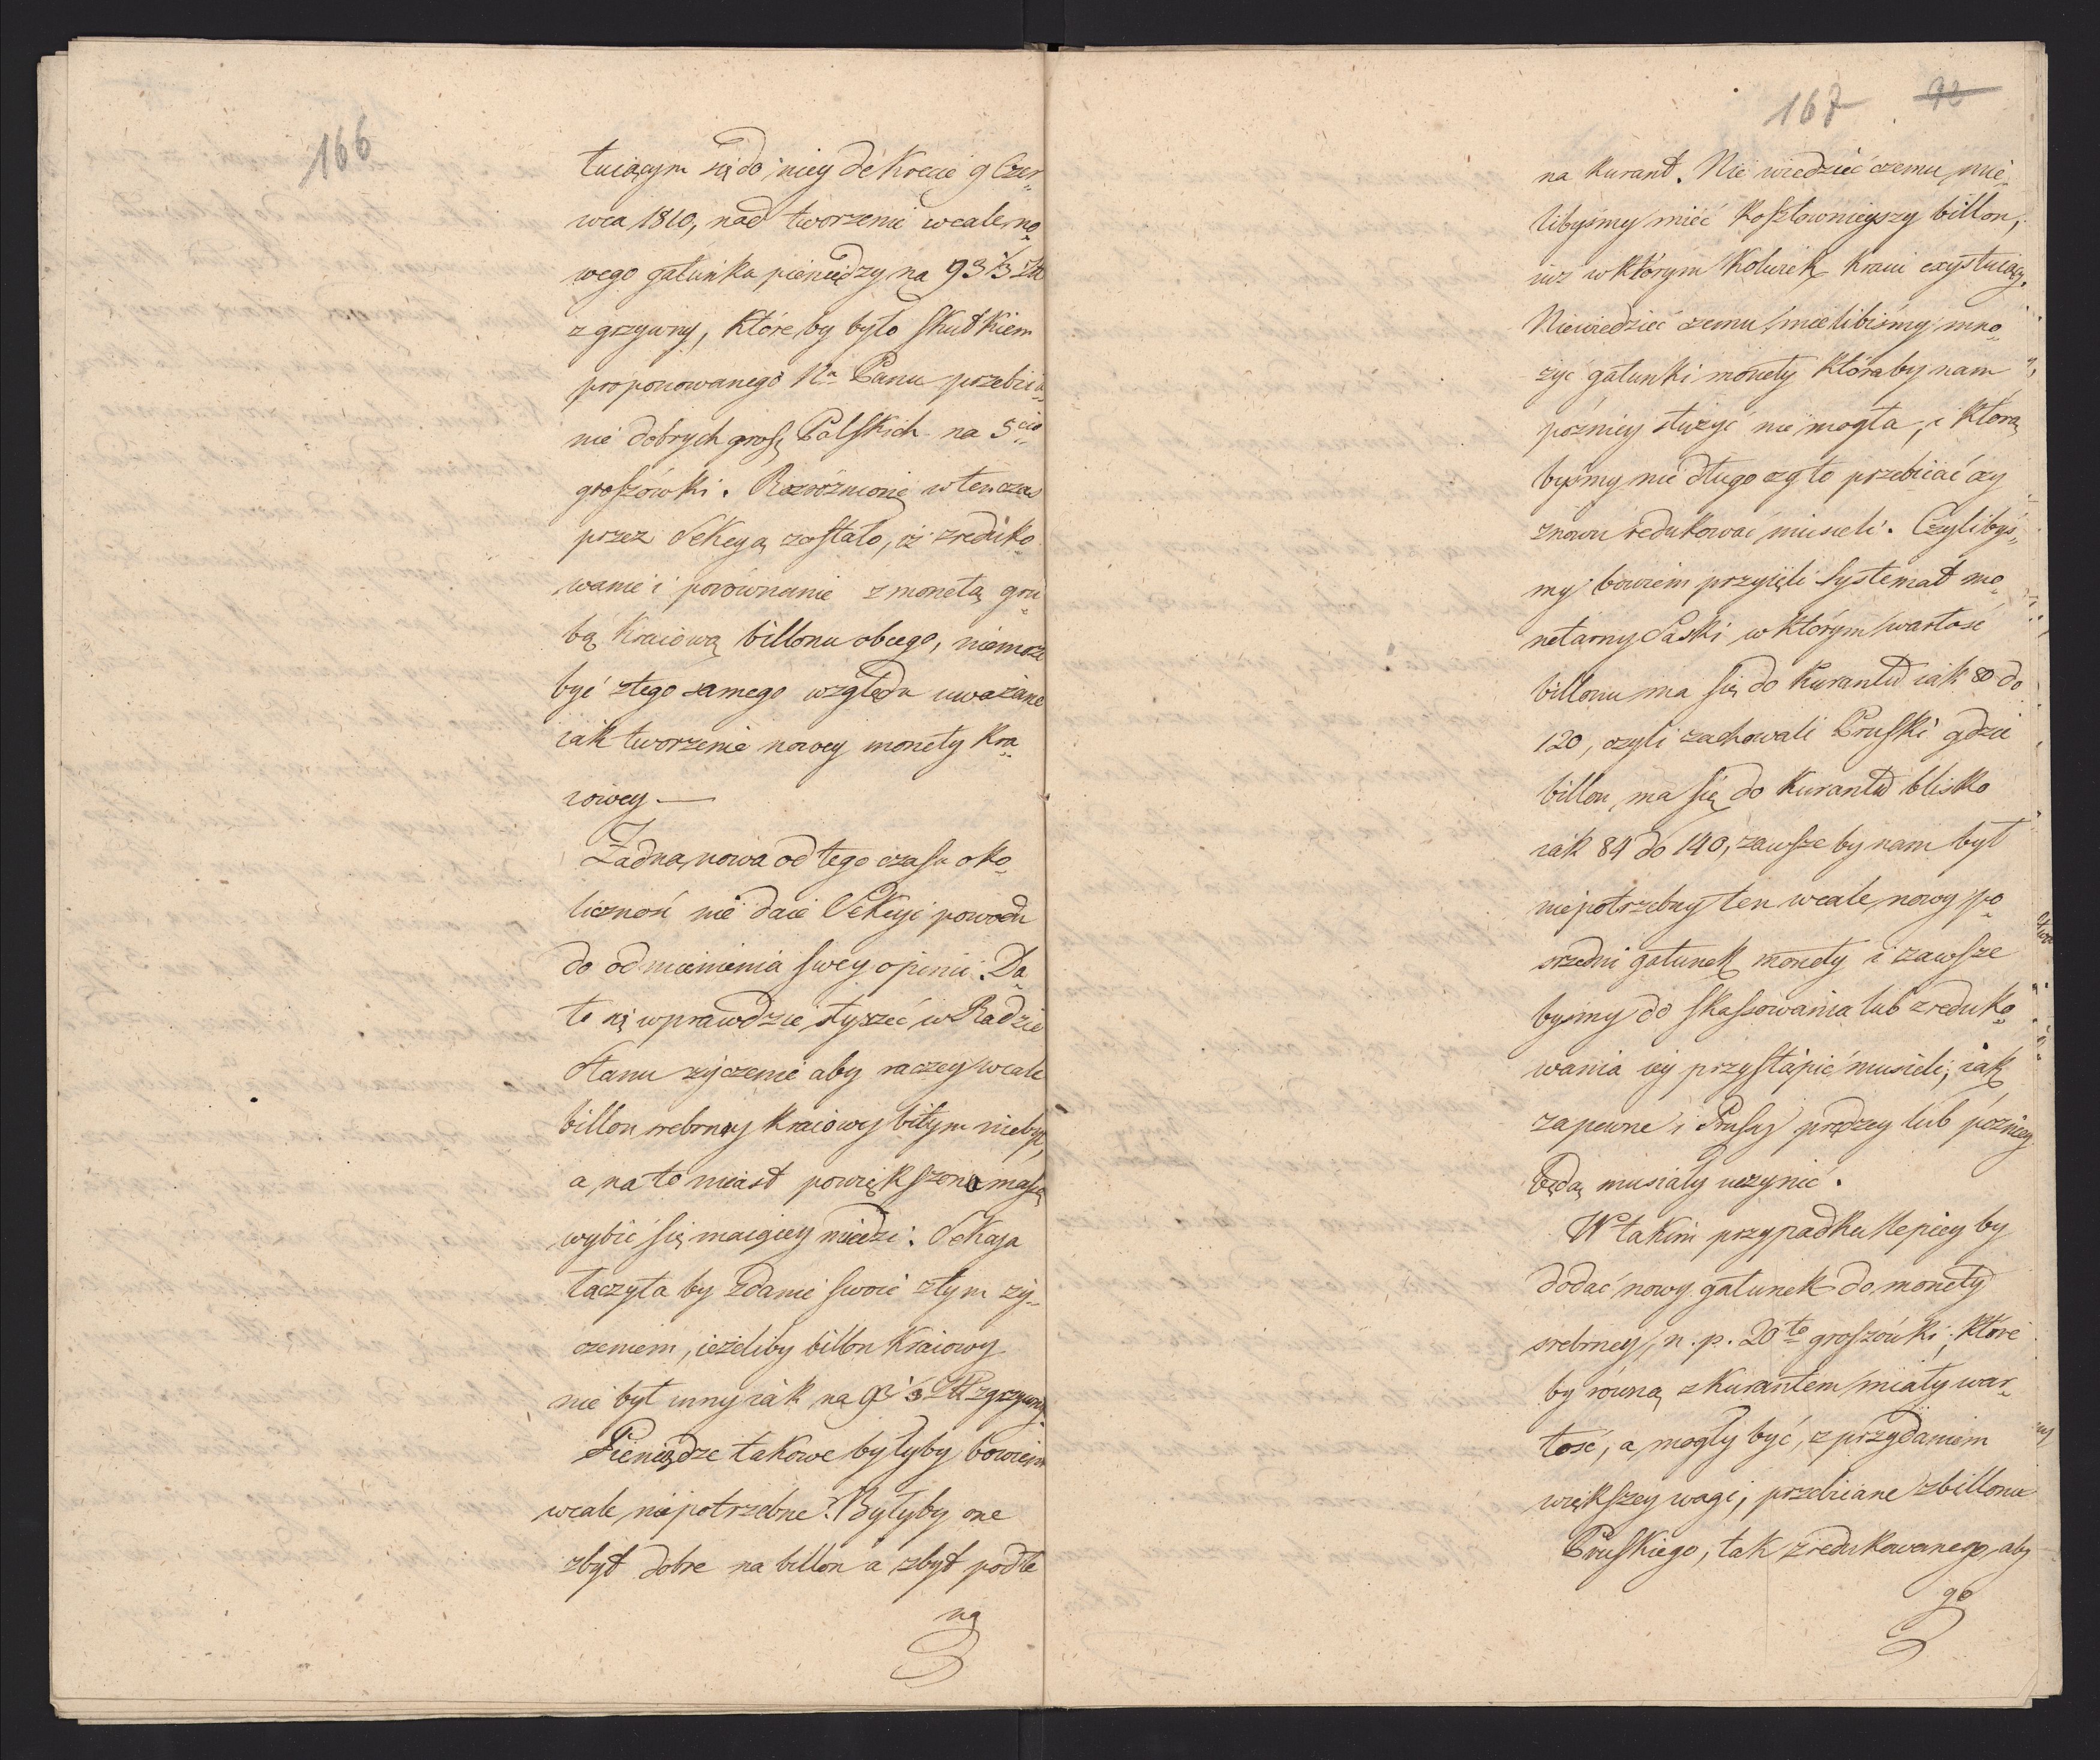 166
tuiącym się do niey de Krecie 9 Czer„
wca 1810, nad tworzenie wcale no„
wego gatunku pieniędzy na 93 1/3 Zł
z grzywny, które by było skutkiem
proponowanego Wa Panu przebicia
nie dobrych grosz Polskich na 5cio„
groszówki. Rozróżnione wtenczas
przez Sekcyą zostało, iż zreduko„
wanie i porównanie z monetą gru„
bą kraiową billonu obcego, niemoże
być z tego samego względu uważane
iak tworzenie nowey monety kra„
iowey —
Żadna nowa od tego czasu oko„
liczność nie daie Sekcyi powodu
do odmienienia swey opinii. Da„
ło się wprawdzie słyszeć w Radzie
Stanu życzenie aby raczey wcale
billon srebrny kraiowy bitym niebył,
a na to miast powiększono massę
wybić się maiącey miedzi: Sekcya
łączyła by zdanie swoie z tym ży„
czeniem, ieżeliby billon kraiowy
nie był inny iak na 93 1/3 Zł z grzywny.
Pieniądze takowe byłyby bowiem
wcale niepotrzebne. Byłyby one
zbyt dobre na billon a zbyt podłe
na
167 72
na kurant. Nie wiedzieć czemu mie„
libyśmy mieć kosztownieyszy billon,
niż w którym kolwiek kraiu exystuiący.
Niewiedzieć czemu mielibiśmy mno„
żyć gatunki monety któraby nam
pózniey służyć nie mogła, i którą
byśmy nie długo czy to przebiiać czy
znowu redukować musieli. Czylibyś„
my bowiem przyięli systemat mo„
netarny Saski w którym wartość
billonu ma się do kurantu iak 80 do
120, czyli zachowali Pruski gdzie
billon ma się do kurantu blisko
iak 84 do 140, zawsze by nam był
niepotrzebny ten wcale nowy po„
srzedni gatunek monety i zawsze
byśmy do skassowania lub zreduko„
wania iey przystąpić musieli, iak
zapewne i Prusy prędzey lub pózniey
będą musiały uczynić.
W takim przypadku lepiey by
dodać nowy gatunek do monety
srebrney, n. p. 20to groszówki, które
by równą z kurantem miały war„
tość, a mogły być, z przydaniem
większey wagi, przebiiane z billonu
Pruskiego, tak zredukowanego, aby
go